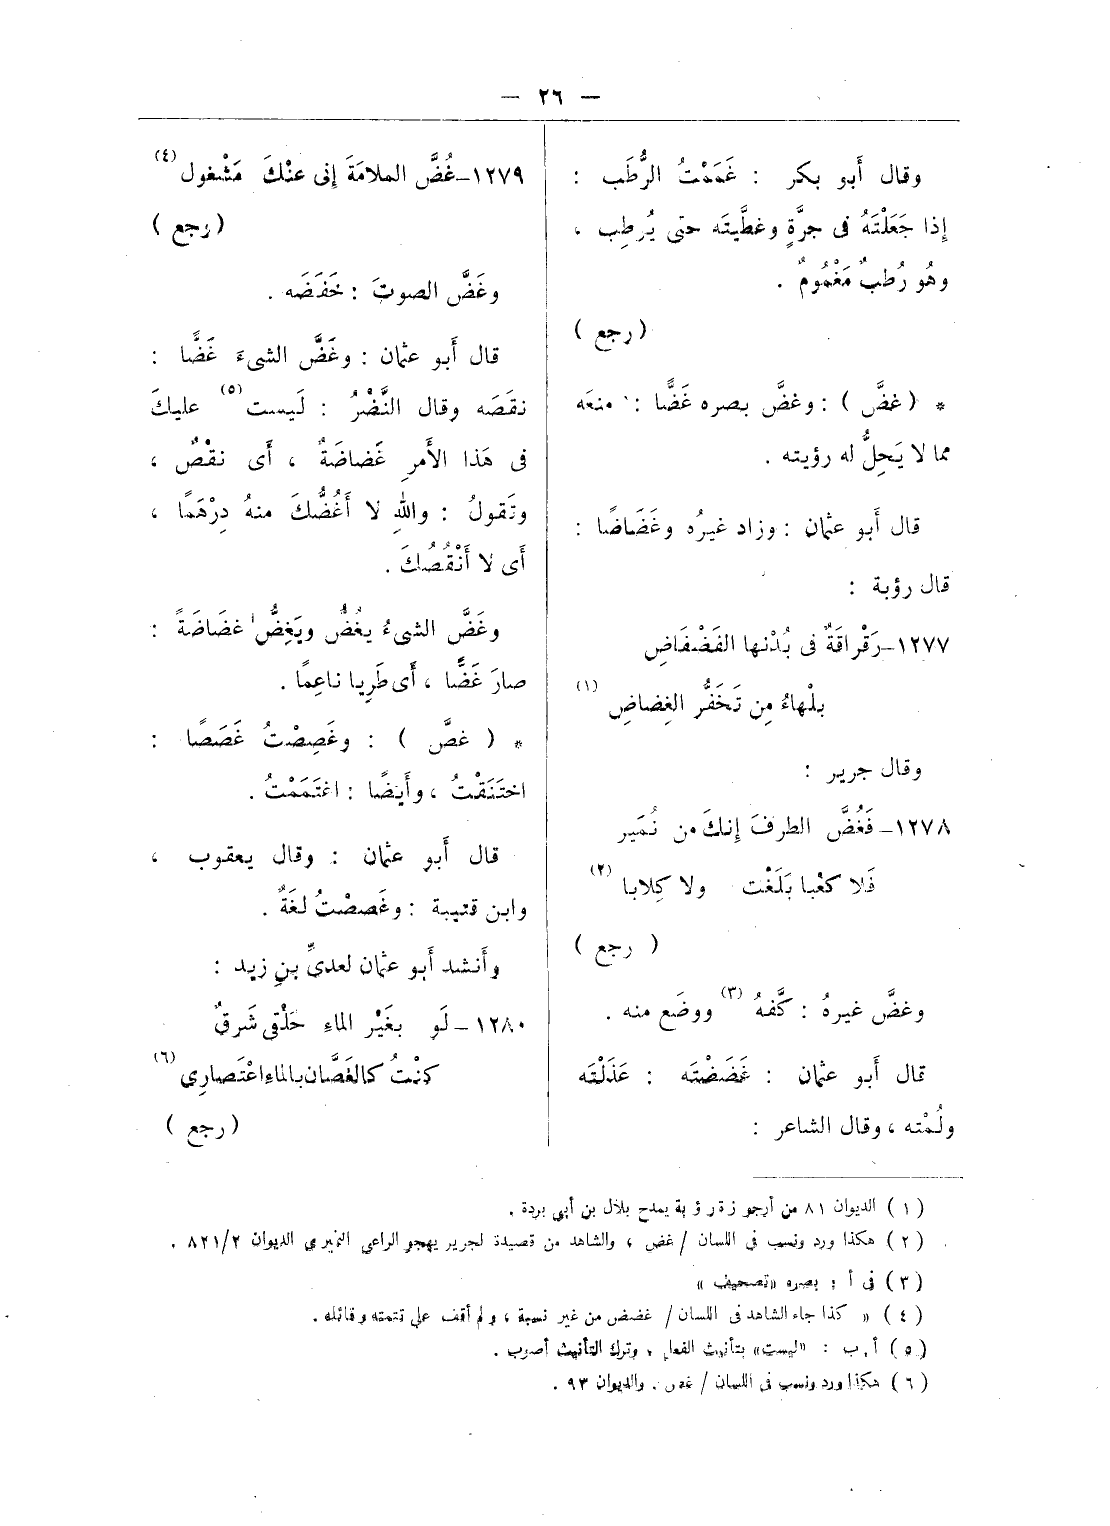 — ٢٦ —
وقال أَبو بكر : غَمَمْتُ الرُّطَب :
إِذا جَعَلْتَهُ فى جرَّةٍ وغطَّيتَه حتى يُرطِب ،
وهُو رُطبٌ مَغْمُومٌ .
( رجع )
* ( غضَّ ) : وغضَّ بصره غَضًّا : منعَه
مما لا يَحِلُّ له رؤيته .
قال أَبو عثمان : وزاد غيرُه وغَضَاضًا :
قال رؤبة :
١٢٧٧ــ رَقْراقَةٌ فى بُدْنها الفَضْفَاضِ
بلْهاءُ مِن تَخَفُّر الغِضاضِ (١)
وقال جرير :
١٢٧٨ــ فَغُضَّ الطرفَ إِنكَ من نُمَير
فَلا كعْبا بَلَغْت ولا كِلابا (٢)
( رجع )
وغضَّ غيرهُ : كَفَّهُ (٣) ووضَع منه .
قال أَبو عثمان : غَضَضْتَه : عَذَلْتَه
ولُمْته ، وقال الشاعر :
١٢٧٩ــ غُضَّ الملامَةَ إنى عنْكَ مَشْغول (٤)
( رجع )
وغَضَّ الصوتَ : خَفَضَه .
قال أَبو عثمان : وغَضَّ الشىءَ غَضًّا :
نقصَه وقال النَّضْرُ : لَيست (٥) عليكَ
فى هَذا الأَمرِ غَضاضَةٌ ، أَى نقْصٌ ،
وتَقولُ : واللهِ لا أَغُضُّكَ منهُ دِرْهَمًا ،
أَى لا أَنْقُصُكَ .
وغَضَّ الشىءُ يغُضُّ ويَغِضُّ غضَاضَةً :
صارَ غَضًّا ، أَى طَرِيا ناعِمًا .
* ( غصَّ ) : وغَصِصْتُ غَصَصًا :
اختَنَقْتُ ، وأَيضًا : اغتَمَمْتُ .
قال أَبو عثمان : وقال يعقوب ،
وابن قتيبة : وغَصصْتُ لغَةٌ .
وأَنشد أَبو عثمان لعدىِّ بنِ زيد :
١٢٨٠ــ لَو بغَيْر الماءِ حَلْقى شَرِقٌ
كنْتُ كالغَصَّان بالماءِ اعْتَصارِي (٦)
( رجع )
( ١ ) الديوان ٨١ من أرجوزة رؤبة يمدح بلال بن أبي بردة .
( ٢ ) هكذا ورد ونسب فى اللسان / غض ، والشاهد من قصيدة لجرير يهجو الراعي النميرى الديوان ٨٢١/٢ .
( ٣ ) فى أ : بصره «تصحيف»
( ٤ ) « كذا جاء الشاهد فى اللسان / غضض من غير نسبة ، ولم أقف على تتمته وقائله .
( ٥ ) أ.ب : «ليست» بتأنيث الفعل ، وترك التأنيث أصوب .
( ٦ ) هكذا ورد ونسب فى اللسان / غص . والديوان ٩٣ .